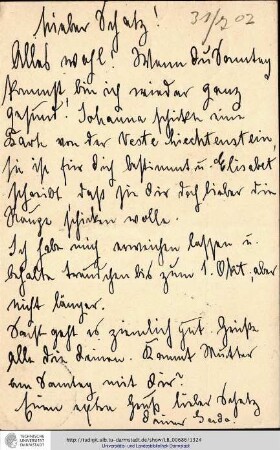 Lieber Schatz!
31/7 02
Alles wohl! Wenn du Sonntag
kommst, bin ich wieder ganz
gesund! Johanna schickte eine
Karte von der Veste Liechtenstein,
sie ist für dich bestimmt u. Elisabet
schreibt, daß sie dir doch lieber die
schicken wolle.
Ich habe mich erweichen lassen u.
behalte bis zum 1. Okt. aber
nicht länger.
Sonst geht es ziemlich gut. Grüße
alle die deinen. Kommt Mutter
am Sonntag mit dir?
Gruß lieber Schatz
deiner
TECHNISCHE
UNIVERSITÄT
DARMSTADT
http://tudigit.ulb.tu-darmstadt.de/show/LB_00686/1324
Universitäts- und Landesbibliothek Darmstadt